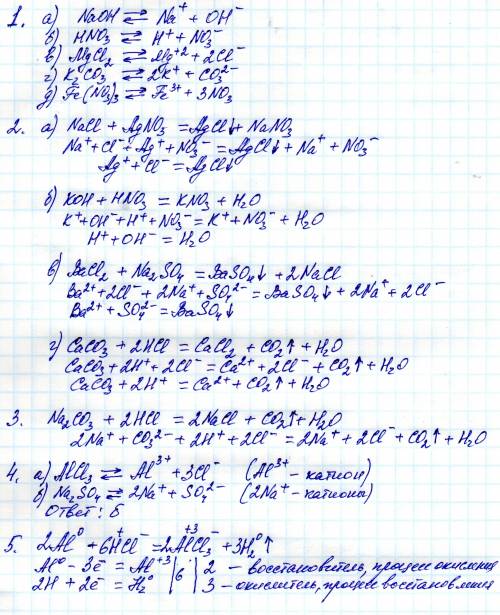 1. а) NaOH ⇄ Na⁺ + OH⁻
б) HNO₃ ⇄ H⁺ + NO₃⁻
в) MgCl₂ ⇄ Mg⁺² + 2Cl⁻
г) K₂CO₃ ⇄ 2K⁺ + CO₃²⁻
д) Fe(NO₃)₃ ⇄ Fe³⁺ + 3NO₃
2. а) NaCl + AgNO₃ = AgCl↓ + NaNO₃
Na⁺ + Cl⁻ + Ag⁺ + NO₃⁻ = AgCl↓ + Na⁺ + NO₃⁻
Ag⁺ + Cl⁻ = AgCl↓
б) KOH + HNO₃ = KNO₃ + H₂O
K⁺ + OH⁻ + H⁺ + NO₃⁻ = K⁺ + NO₃⁻ + H₂O
H⁺ + OH⁻ = H₂O
в) BaCl₂ + Na₂SO₄ = BaSO₄↓ + 2NaCl
Ba²⁺ + 2Cl⁻ + 2Na⁺ + SO₄²⁻ = BaSO₄↓ + 2Na⁺ + 2Cl⁻
Ba²⁺ + SO₄²⁻ = BaSO₄↓
г) CaCO₃ + 2HCl = CaCl₂ + CO₂↑ + H₂O
CaCO₃ + 2H⁺ + 2Cl⁻ = Ca²⁺ + 2Cl⁻ + CO₂↑ + H₂O
CaCO₃ + 2H⁺ = Ca²⁺ + CO₂↑ + H₂O
3. Na₂CO₃ + 2HCl = 2NaCl + CO₂↑ + H₂O
2Na⁺ + CO₃²⁻ + 2H⁺ + 2Cl⁻ = 2Na⁺ + 2Cl⁻ + CO₂↑ + H₂O
4. а) AlCl₃ ⇄ Al³⁺ + 3Cl⁻ (Al³⁺ - катион)
б) Na₂SO₄ ⇄ 2Na⁺ + SO₄²⁻ (2Na⁺ - катионы)
Ответ: Б
5. 2Al⁰ + 6H⁺Cl⁻ = 2Al⁺³Cl₃⁻ + 3H₂⁰↑
Al⁰ - 3e̅ = Al⁺³ | 6 | 2 - восстановитель, процесс окисления
2H + 2e̅ = H₂⁰ | | 3 - окислитель, процесс восстановления